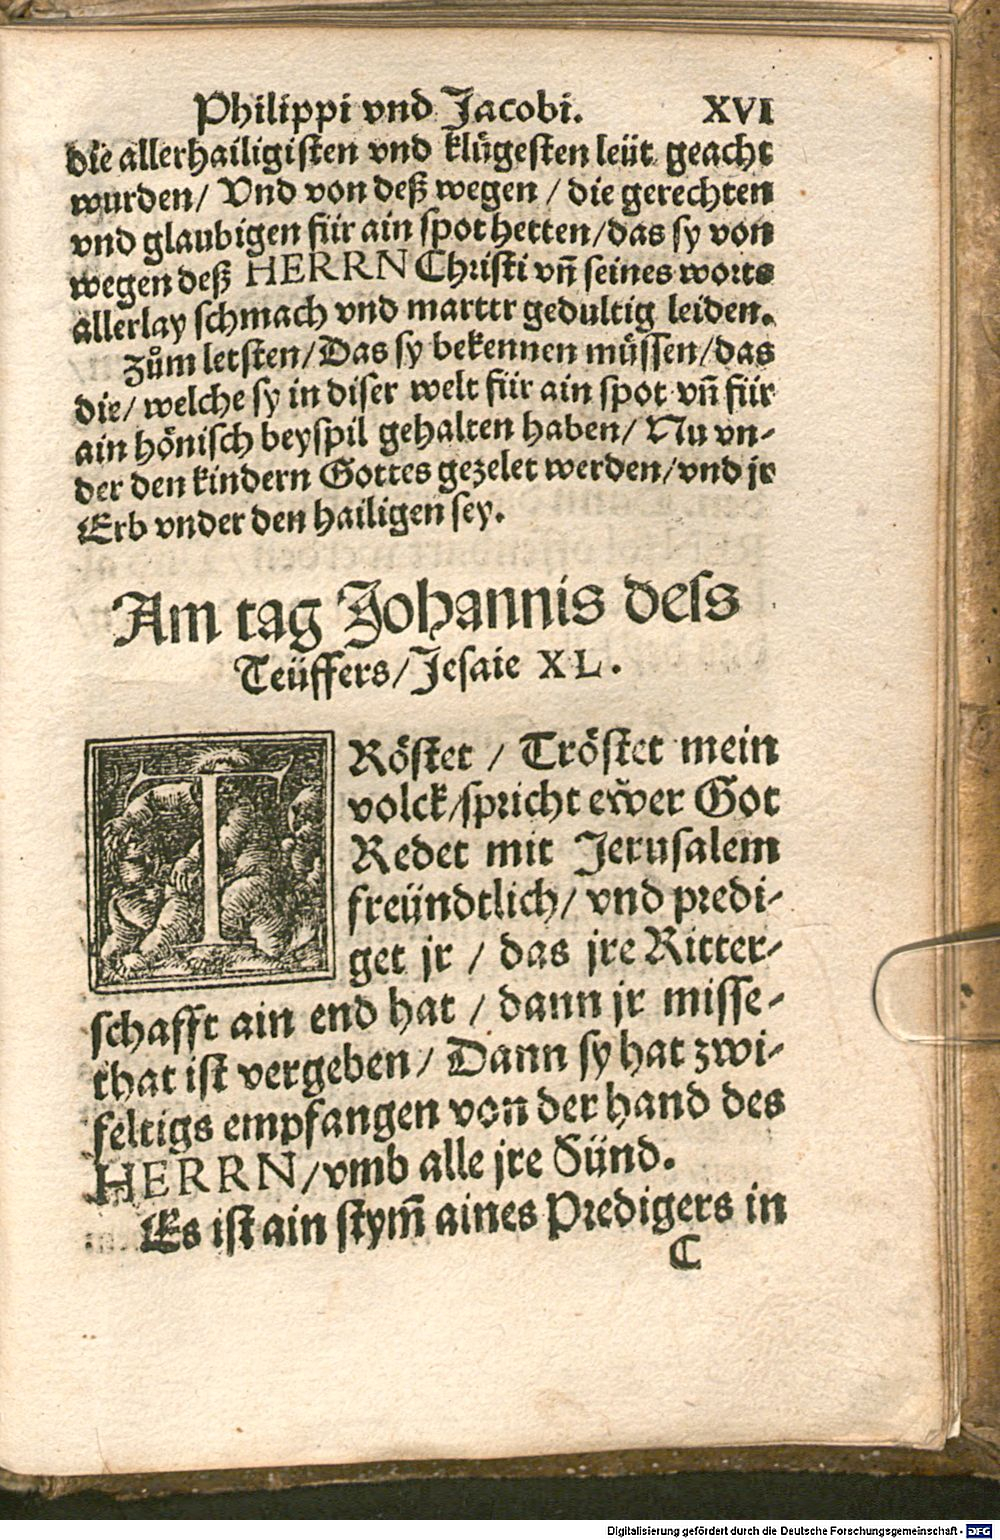 Philippi vnd Jacobi. XVI
die allerhailigisten vnd klůgesten leüt geacht
wurden/ Vnd von deß wegen / die gerechten
vnd glaubigen für ain spot hetten/das sy von
wegen deß HERRN Christi vñ seines worts
allerlay schmach vnd marter gedultig leiden.
Zům letsten/Das sy bekennen můssen/das
die/ welche sy in diser welt für ain spot vñ für
ain hönisch beyspil gehalten haben/ Nu vn-
der den kindern Gottes gezelet werden/vnd jr
Erb vnder den hailigen sey.
Am tag Johannis dess
Teüffers/Jesaie XL.
TRöstet / Tröstet mein
volck/spricht ewer Got
Redet mit Jerusalem
freündtlich/ vnd predi-
get jr / das jre Ritter-
schafft ain end hat / dann jr misse-
that ist vergeben/ Dann sy hat zwi-
feltigs empfangen von der hand des
HERRN/vmb alle jre Sünd.
Es ist ain stym̃ aines Predigers in
C
Digitalisierung gefördert durch die Deutsche Forschungsgemeinschaft - DFG